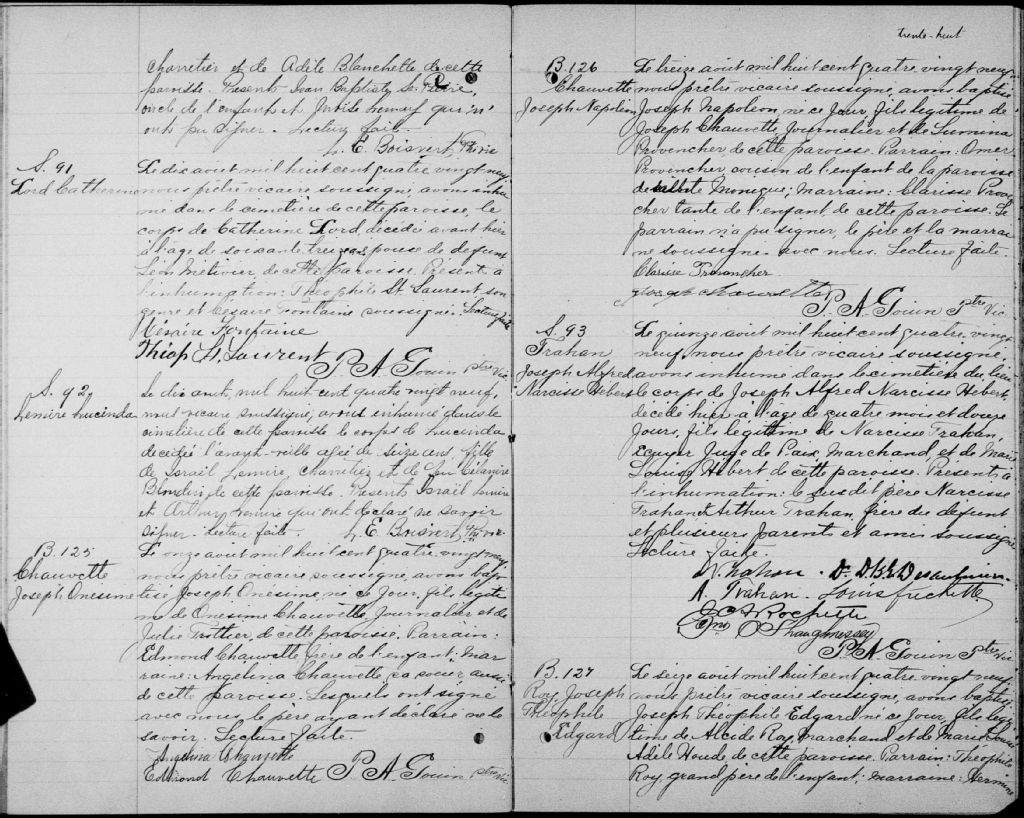 charretier et de Adèle Blanchette de cette
paroisse. Présents Jean Baptiste
oncle de l'enfant et qui n'
ont pu signer. Lecture faite.
L. E. Boisvert Ptre vic
S. 91
Lord Catherine
Le dix aout mil huit cent quatre vingt neuf,
nous prêtre vicaire soussigné, avons inhu
mé dans le cimetière de cette paroisse, le
corps de Catherine Lord, décédée avant hier
à l'age de soixante treize, épouse de defunt
Léon Métivier de cette paroisse. Présents à
l'inhumation: Théophile St. Laurent son
genre et Césaire Fontaine soussignés. Lecture faite
Césaire Fontaine
Théop St. Laurent P. A. Gouin ptre Vic
S. 92
Lemire Lucinda
Le dix aout, mil huit cent quatre vingt neuf,
nous vicaire soussigné, avons inhumé dans le
cimetière de cette paroisse le corps de Lucinda
décédée l'avant-veille agée de seize ans, fille
de Israël Lemire, charretier et de Célanire
Blondin de cette paroisse. Présents Israël Lemire
et Arthur Lemire qui ont déclaré ne savoir
signer. Lecture faite. L. E. Boisvert Ptre vic.
B. 125
Chauvette
Joseph Onésime
Le onze aout mil huit cent quatre vingt neuf,
nous prêtre vicaire soussigné, avons bap
tisé Joseph Onésime, né ce jour, fils légiti
me de Onésime Chauvette, Journalier et de
Julie Trottier, de cette paroisse. Parrain:
Edmond Chauvette frère de l'enfant; Mar
raine: Angelina Chauvette, sa soeur aussi
de cette paroisse. Lesquels ont signé
avec nous, le père ayant déclaré ne le
savoir. Lecture faite.
Angelina Chauvette
Edmond Chauvette P. A. Gouin ptre Vic
trente-huit
B. 126
Chauvette
Joseph Napoléon
Le treize aout mil huit cent quatre vingt neuf,
nous prêtre vicaire soussigné, avons baptisé
Joseph Napoléon, né ce jour, fils légitime de
Joseph Chauvette, Journalier et de Lumina
Provencher, de cette paroisse. Parrain: Omer
Provencher, cousin de l'enfant de la paroisse
de Monique; Marraine: Clarisse Proven
cher tante de l'enfant de cette paroisse. Le
parrain n'a pu signer, le père et la marrai
ne soussignés avec nous. Lecture faite.
Clarisse Provencher
Joseph Chauvette
P. A. Gouin Ptre Vic
S. 93
Trahan
Joseph Alfred
Narcisse Hébert
Le quinze aout mil huit cent quatre vingt
neuf, nous prêtre vicaire soussigné,
avons inhumé dans le cimetière du lieu
le corps de Joseph Alfred Narcisse Hébert
décédé hier à l'age de quatre mois et douze
jours, fils légitime de Narcisse Trahan,
Ecuyer Juge de Paix, Marchand, et de Marie
Louise Hébert de cette paroisse. Présents à
l'inhumation: le susdit père Narcisse
Trahan et Arthur Trahan, frère du defunt
et plusieurs parents et amis soussignés
Lecture faite.
N. Trahan
A. Trahan. Louis Frechette
P. A. Gouin Ptre Vic
B. 127
Roy Joseph
Théophile
Edgard
Le seize aout mil huit cent quatre vingt neuf
nous prêtre vicaire soussigné, avons baptisé
Joseph Théophile Edgard né ce jour, fils légi
time de Alcide Roy, Marchand et de Marie Louise
Adèle Houde de cette paroisse. Parrain: Théophile
Roy, grand père de l'enfant; marraine: Hermine